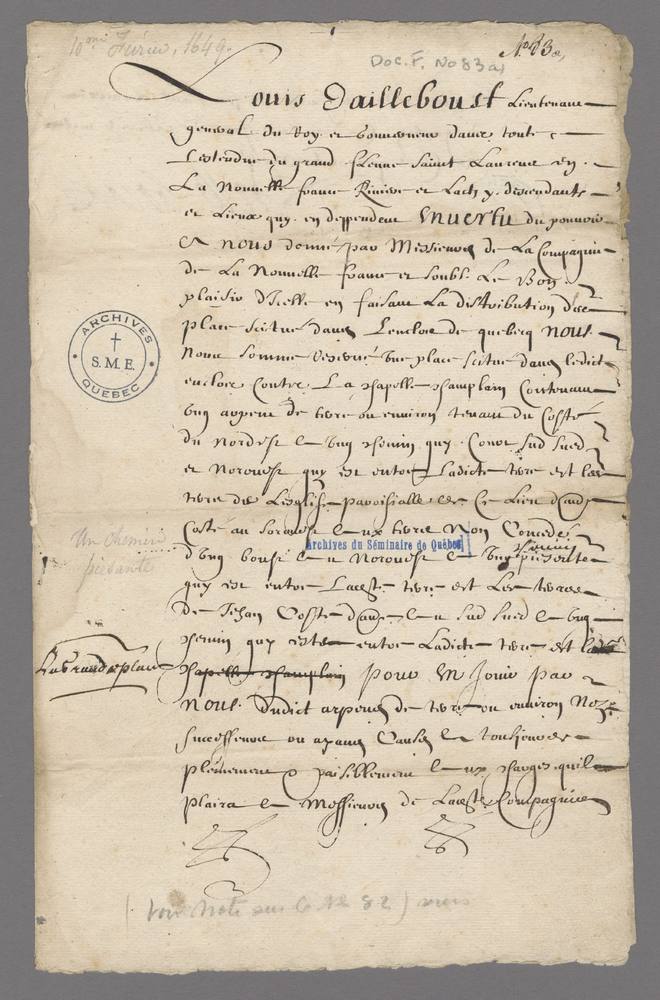 10me Février, 1649.
No 83a,
Doc. F. No 83a,
Louis Dailleboust Lieutenant
general du Roy et Gouverneur dans toute
Lestendue du grand fleuve Saint Laurent en
La Nouvelle france Rivieres et Lacts y descendants
et Lieux quy en deppendent En vertu du pouvoir
A nous donné par Messieurs de La Compagnie
de La Nouvelle france et soubs Le Bon
plaisir d'Icelle en faisant La distribution des
place scitué dans Lenclos de quebecq nous
Nous sommes reservé une place scitue dans ledict
enclos Contre La chapelle champlain Contenant
ung arpent de terre ou environ tenant du Costé
du Nordest A ung chemin quy Court Sud Sued
et Norouest quy est entre Ladicte terre est les
terre de Leglise paroisialle de Ce Lieu d'autre
Costé au Sorouest aux terre Non Concedés
d'ung bout au Norouest A ung chemin
quy est entre Laeste terre est Les terres
de Jehan Coste d'autre au Sud Sued A ung
chemin quy est entre Ladicte terre est la
chapelle champlain pour En Jouir par
Nous dudict arpent de terre ou environ Noz
successeurs ou ayans Causes A tousjours
plainement & paisiblement aux charges quil
plaira A Messieurs de Laeste Compagnie
La grande place
Un chemin
présente
ARCHIVES
S.M.E.
QUEBEC
Archives du Séminaire de Québec
(Voir Note sur le No 82)